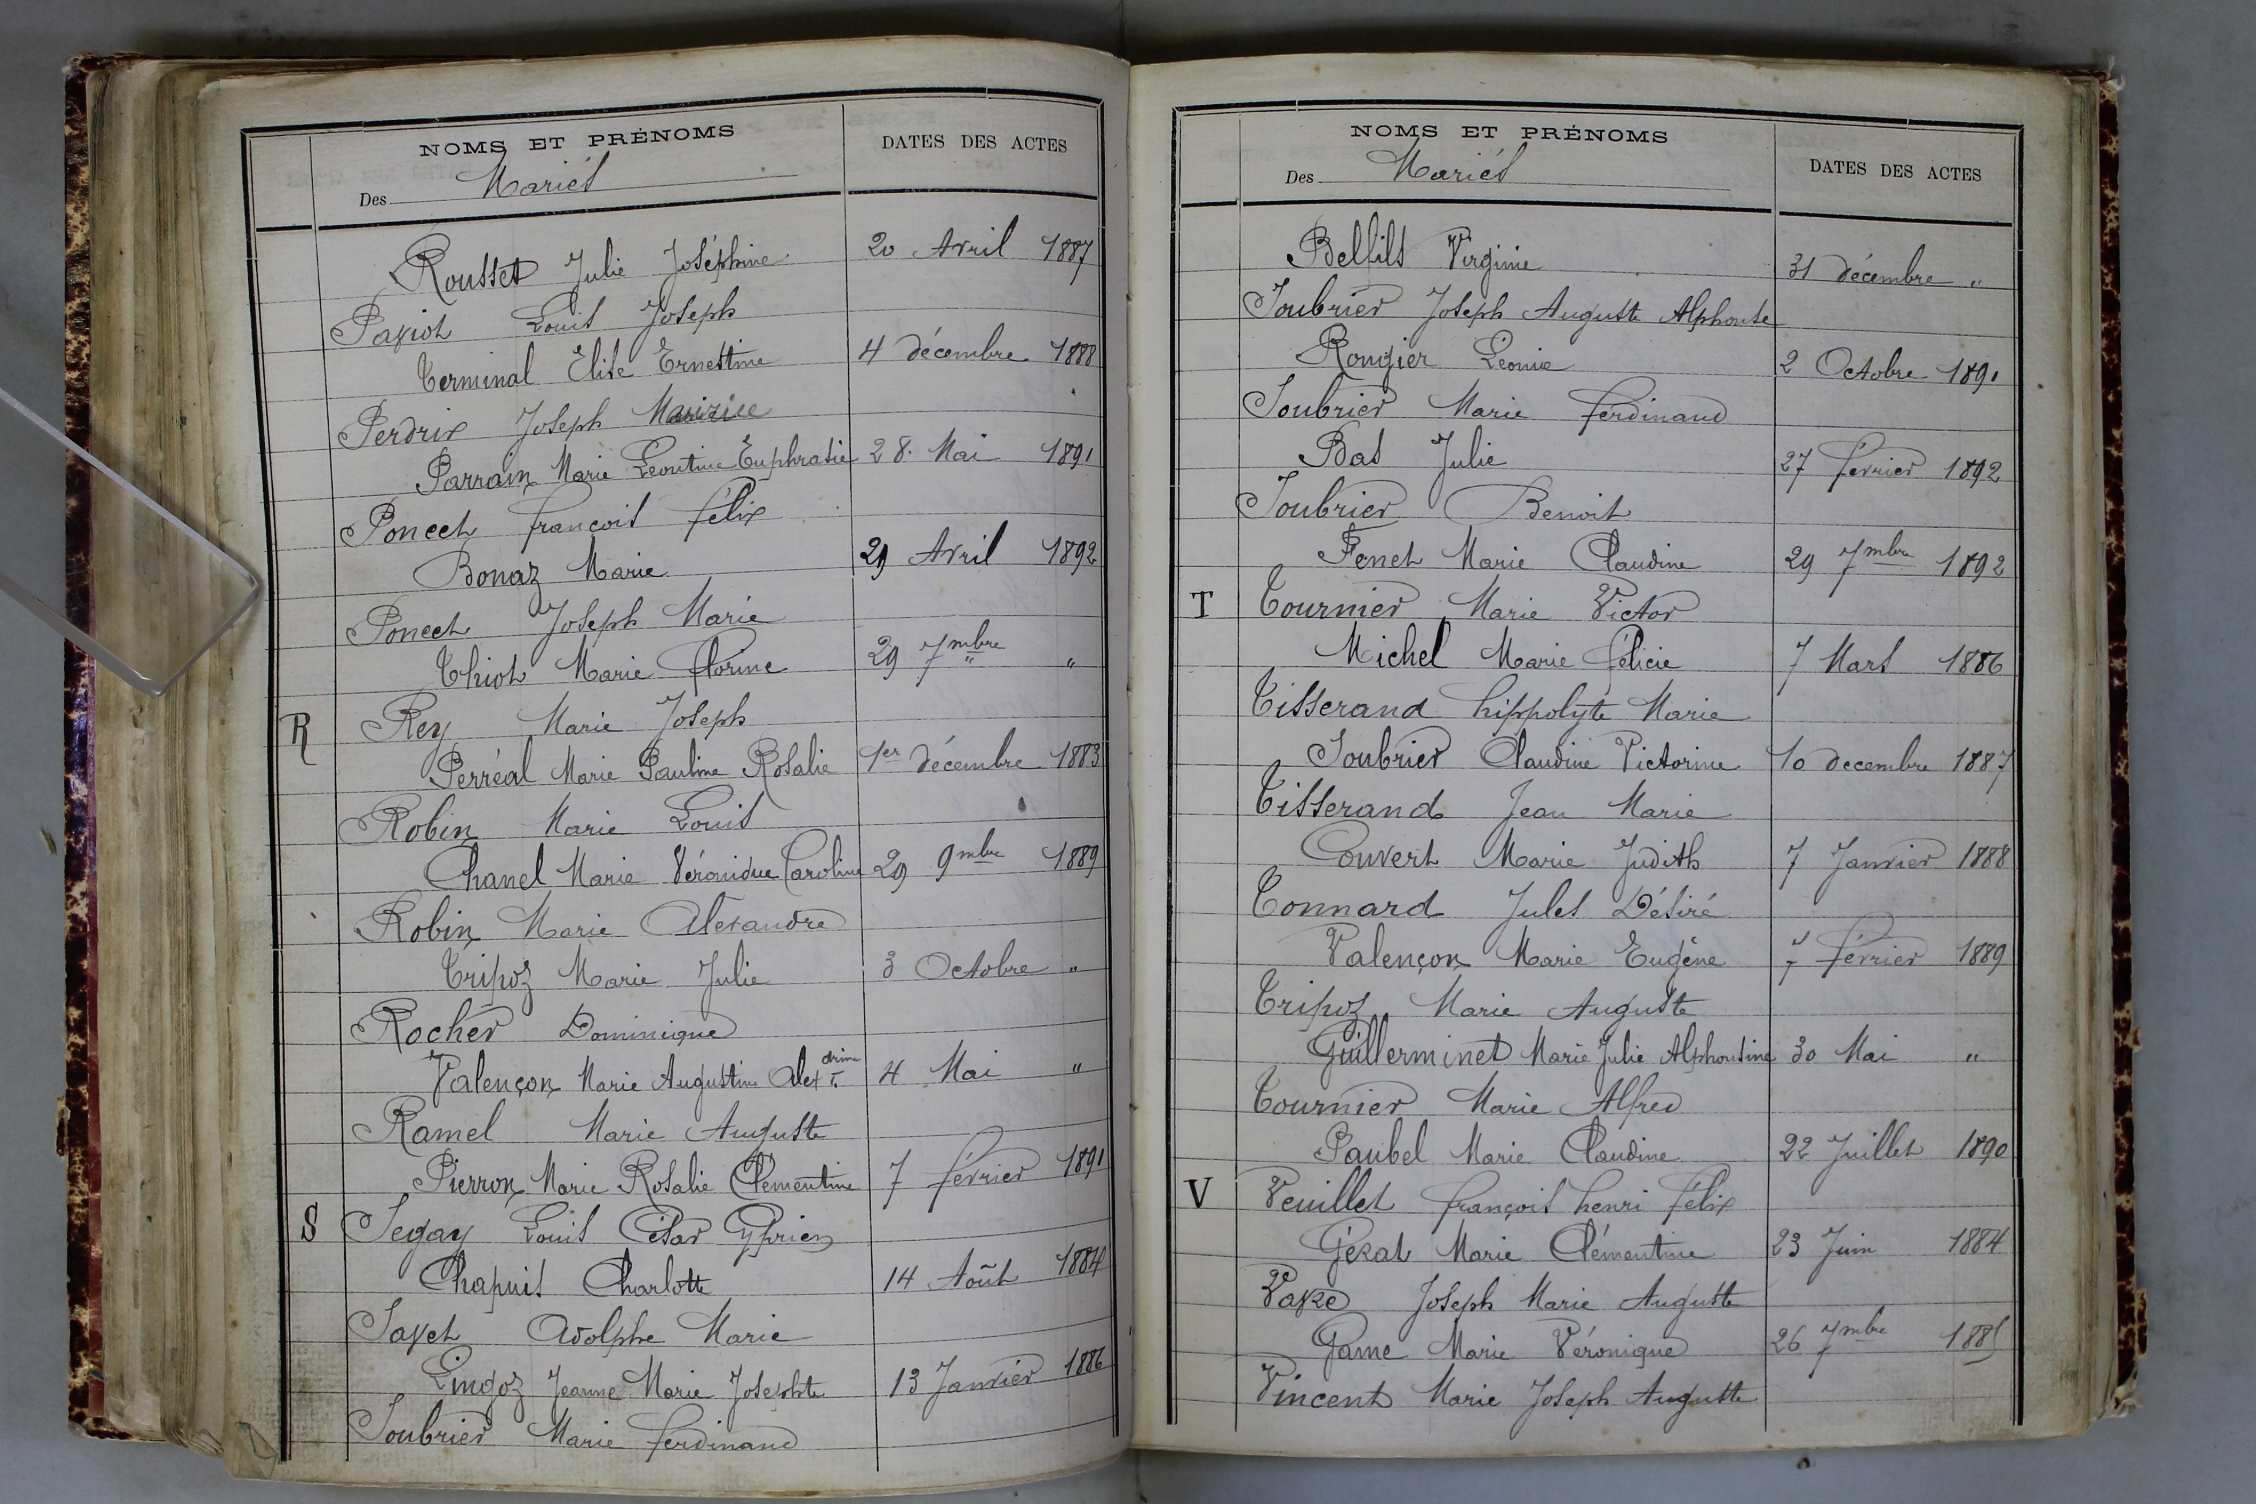 NOMS ET PRÉNOMS
DATES DES ACTES
Des Mariés
Rousset Julie Joséphine 20 Avril 1887
Payiot Louis Joseph
Terminal Elise Ernestine 4 décembre 1888
Perdrix Joseph Maurice
Parrain Marie Léontine Euphrasie 28 Mai 1891
Poncet François félix
Bonaz Marie 29 Avril 1892
Poncet Joseph Marie
Thiot Marie Florine 29 7mbre "
R Rey Marie Joseph
Perréal Marie Pauline Rosalie 1er décembre 1883
Robin Marie Louis
Chanel Marie Véronique Caroline 29 9mbre 1889
Robin Marie Alexandre
Tripoz Marie Julie 3 Octobre "
Rocher Dominique
Valençon Marie Augustine Alexdrine 4 Mai "
Ramel Marie Auguste
Pierron Marie Rosalie Clémentine 7 février 1891
S Segay Louis César Cyprien
Chapuis Charlotte 14 Août 1884
Sayet Adolphe Marie
Lingoz Jeanne Marie Josephte 13 Janvier 1886
Soubrier Marie ferdinand
NOMS ET PRÉNOMS
DATES DES ACTES
Des Mariés
Belfils Virginie 31 décembre "
Soubrier Joseph Auguste Alphonse
Rougier Léonie 2 Octobre 1891
Soubrier Marie ferdinand
Bas Julie 27 février 1892
Soubrier Benoit
Fenet Marie Claudine 29 7mbre 1892
T Tournier Marie Victor
Michel Marie félicie 7 Mars 1886
Tisserand hippolyte Marie
Soubrier Claudine Victorine 10 decembre 1887
Tisserand Jean Marie
Convert Marie Judith 7 Janvier 1888
Tonnard Jules Désiré
Valençon Marie Eugène 7 février 1889
Tripoz Marie Auguste
Guillerminet Marie Julie Alphonsine 30 Mai "
Tournier Marie Alfred
Paubel Marie Claudine 22 Juillet 1890
V Veuillet françois henri félix
Gérat Marie Clémentine 23 Juin 1884
Vayre Joseph Marie Auguste
Game Marie Véronique 26 7mbre 1885
Vincent Marie Joseph Auguste